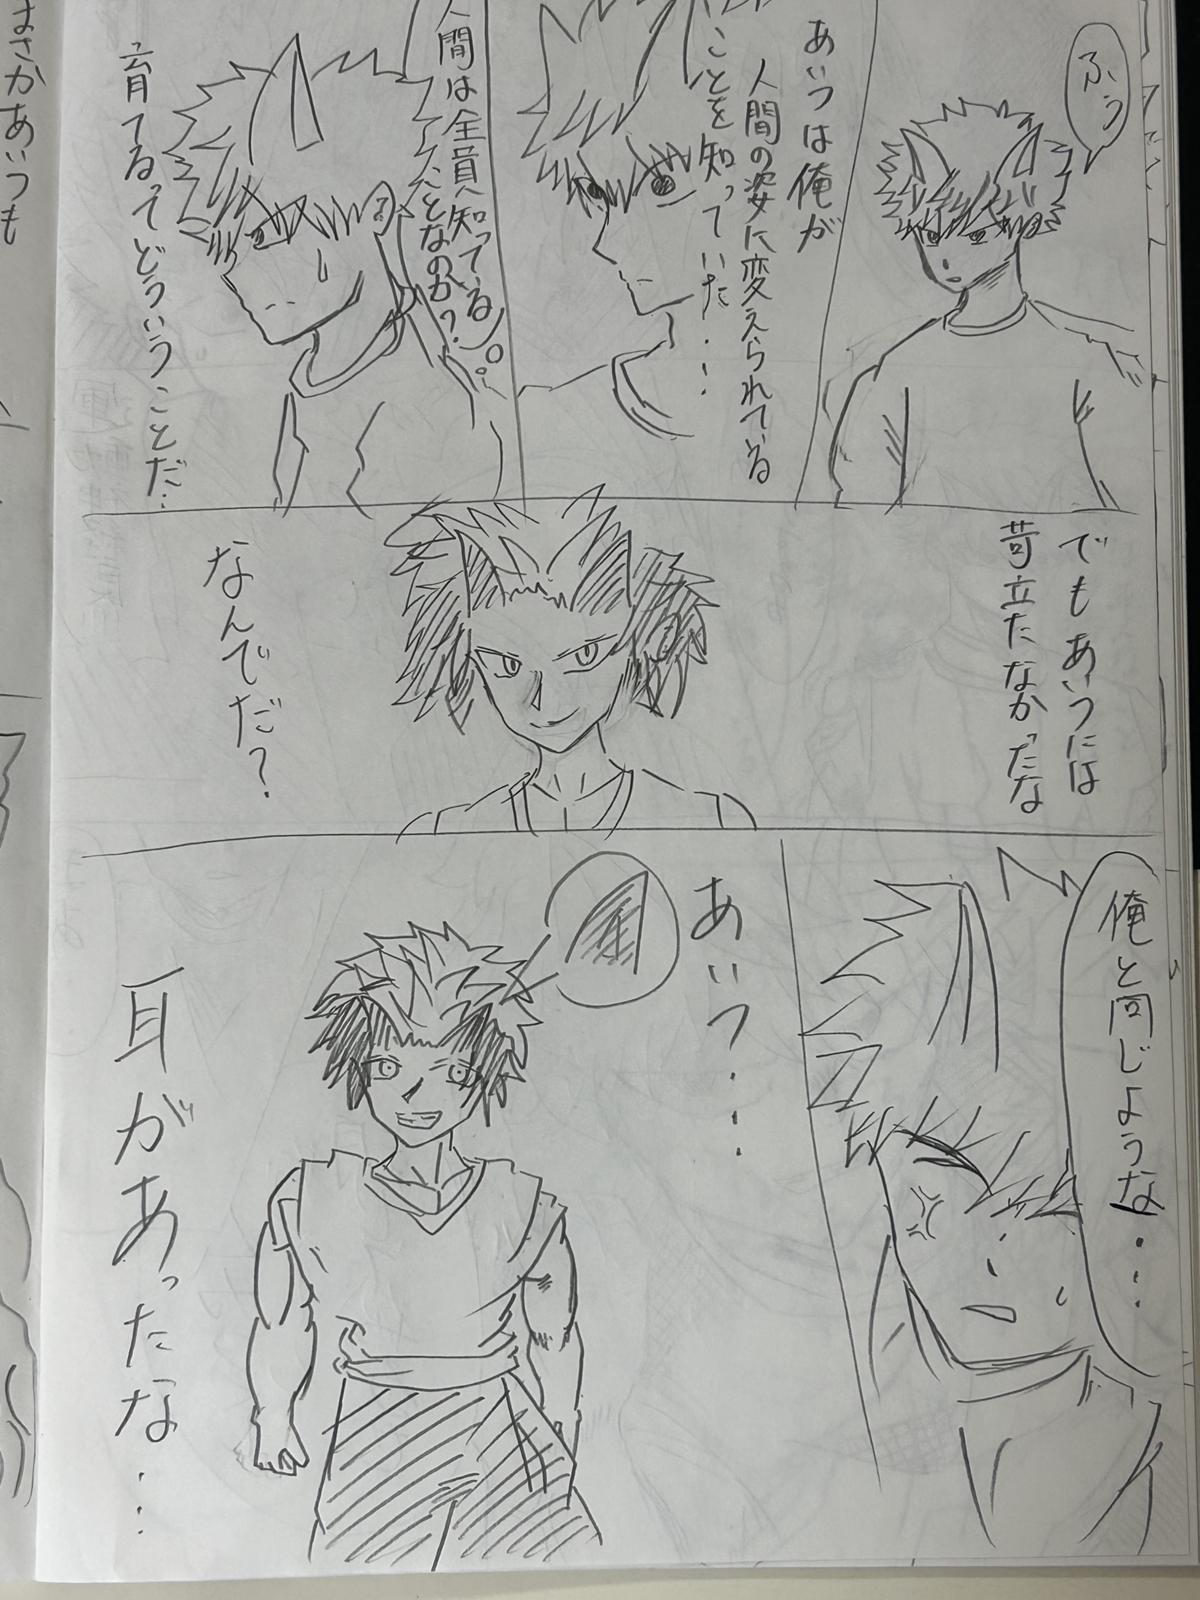 ふぅ
あいつは俺が
人間の姿に変えられている
ことを知っていた・・・
人間は全員知っている
ことなのか?
育てるってどういうことだ…
でもあいつには
苛立たなかったな
なんでだ?
俺と同じような・・・
あいつ・・・
耳があったな・・・
まさかあいつも